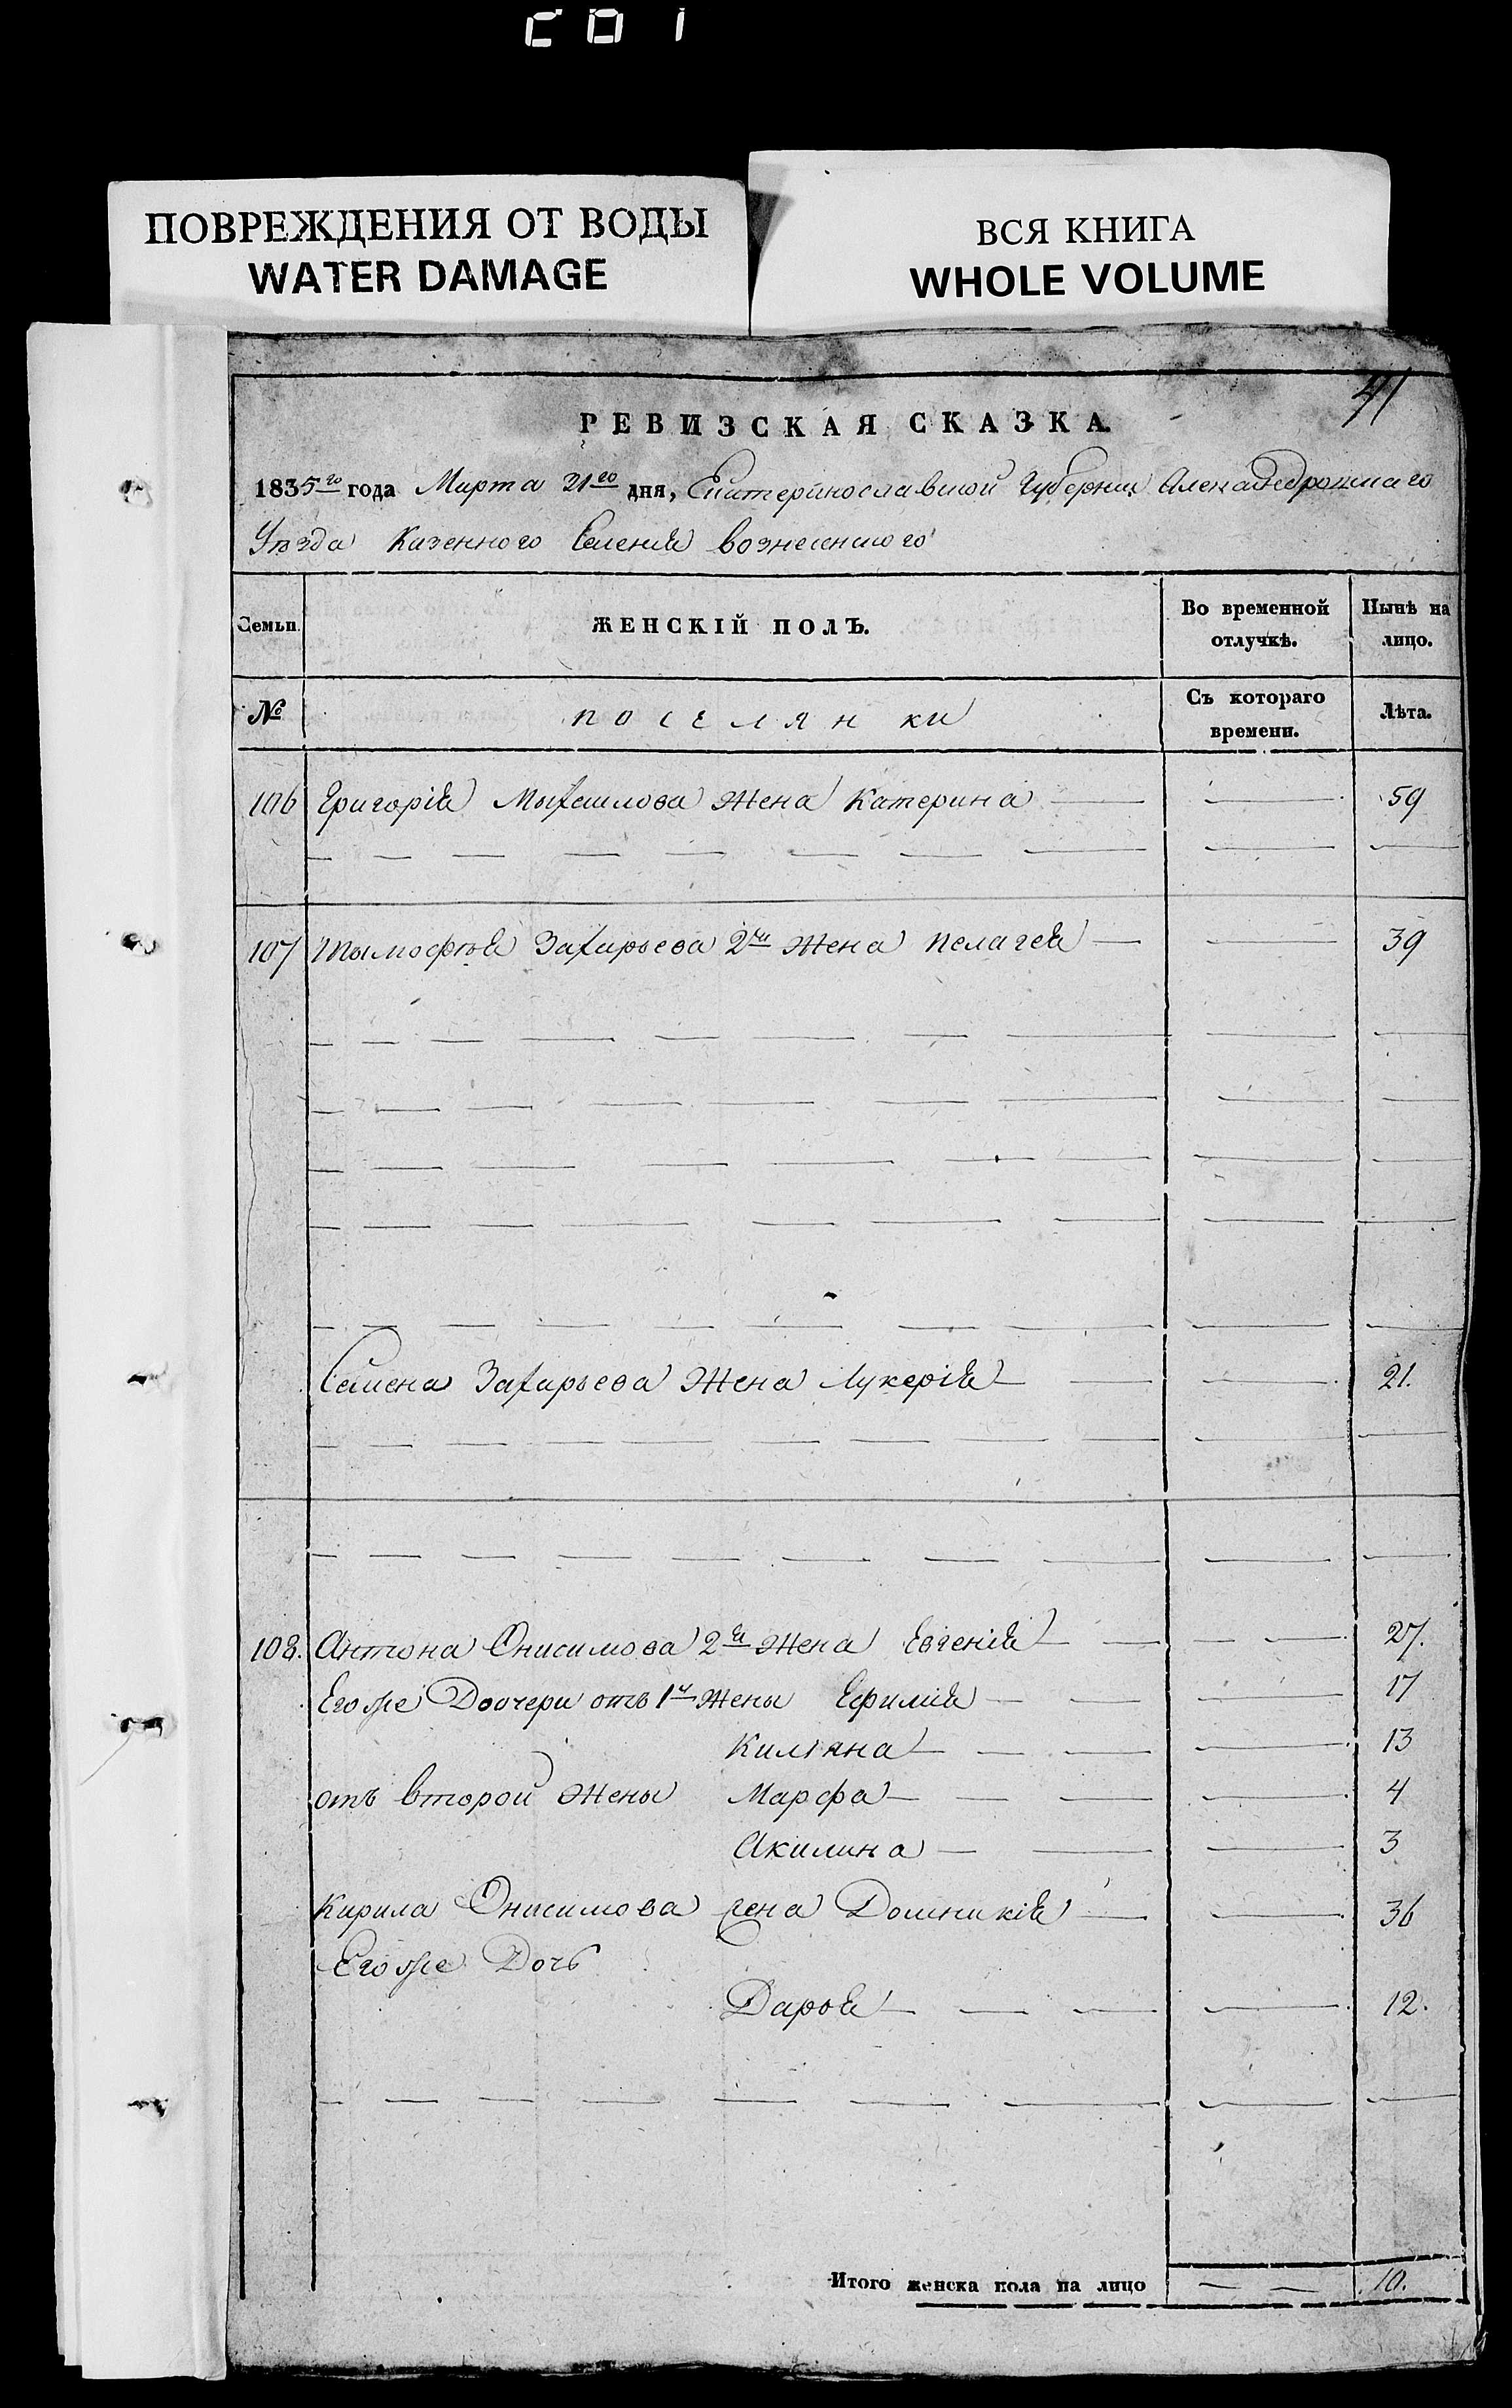 ПОВРЕЖДЕНИЯ ОТ ВОДЫ
WATER DAMAGE
ВСЯ КНИГА
WHOLE VOLUME
41
РЕВИЗСКАЯ СКАЗКА.
1835го года Марта 21го дня, Екатеринославской Губернии Александровскаго
Уезда Казенного Селения вознесенского
Семьи. ЖЕНСКІЙ ПОЛЪ. Во временной отлучкѣ. Нынѣ на лицо.
№ поселянки Съ котораго времени. Лѣта.
106 Григорія Михаилова жена Катерина 59
107 Тымофѣя Захарьева 2я жена Пелагея 39
Семена Захарьева жена Лукерія 21.
108. Антона Онисимова 2я жена Евгенія 27.
Егоже Доочери отъ 1й жены Ефимия 17
Килiяна 13
отъ второй жены Марфа 4
Акилина 3
Кирила Онисимова жена Домникія 36
Егоже Дочь
Дарья 12.
Итого женска пола на лицо 10.